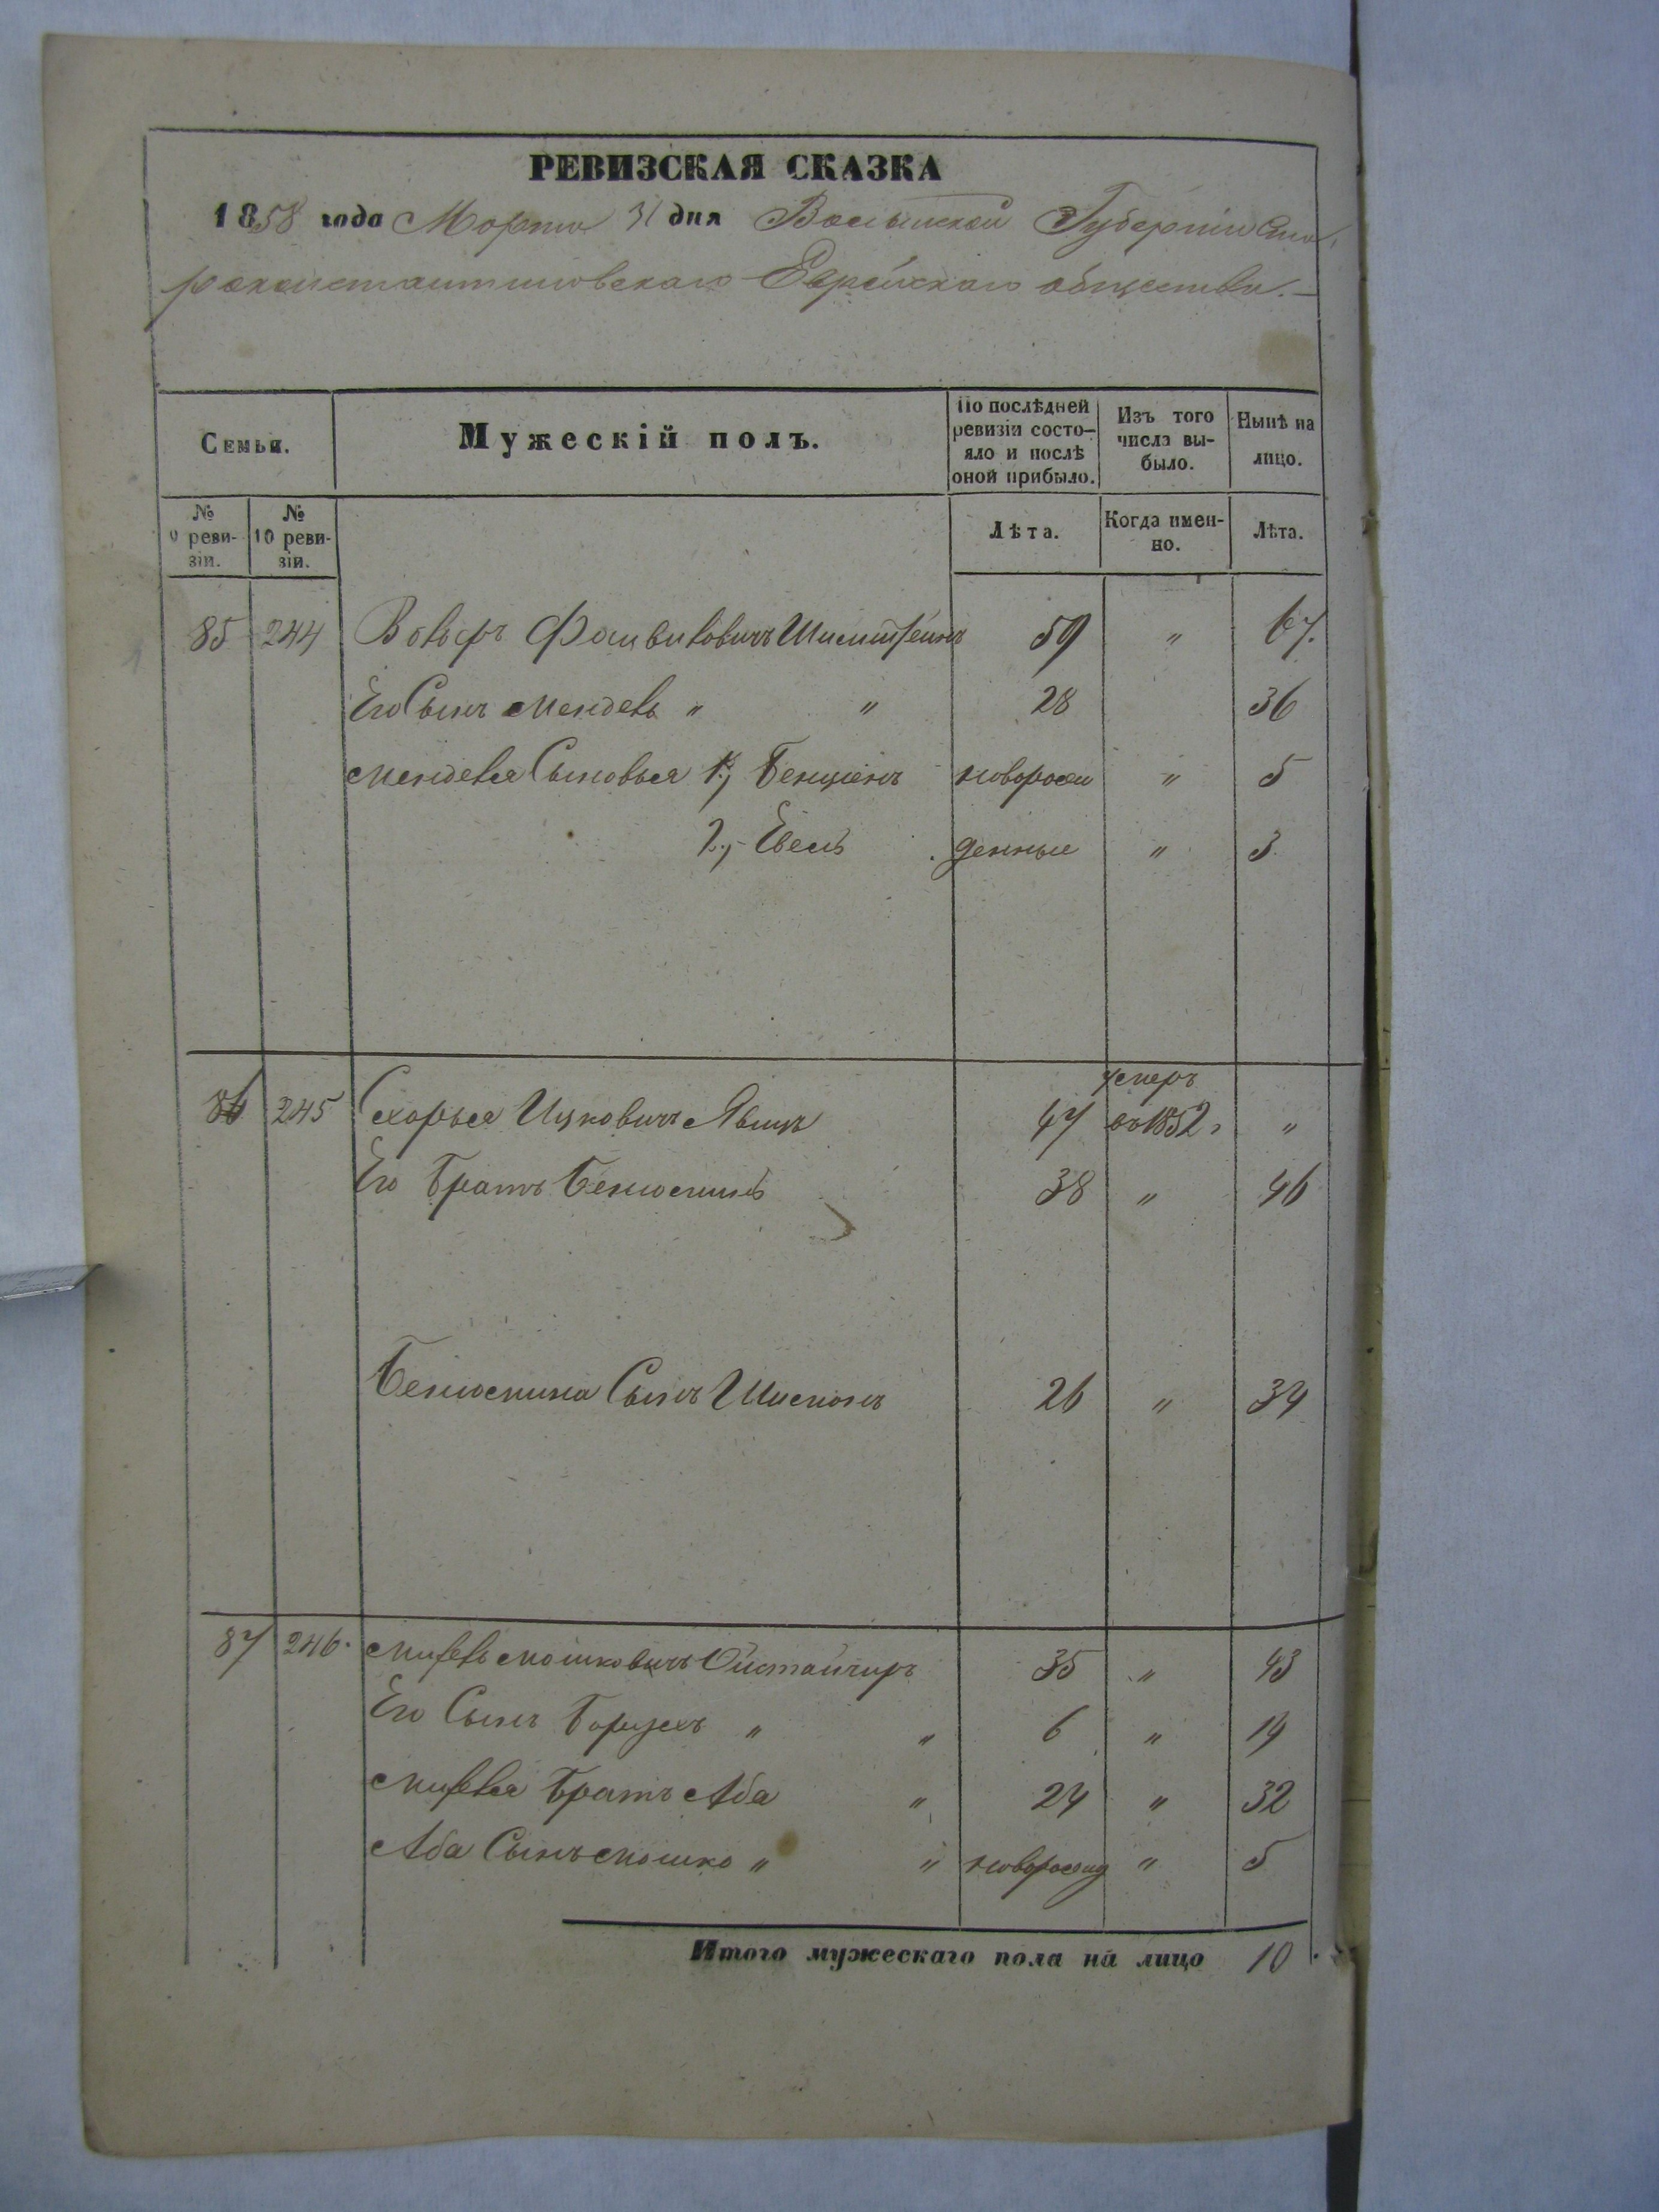 РЕВИЗСКАЯ СКАЗКА
1858 года Марта 31 дня Волынской Губерніи Ста-
роконстантиновскаго Еврейскаго общества.
Семьи.
Мужескій полъ.
По послѣдней ревизіи состо-яло и послѣ оной прибыло.
Изъ того числа вы-было.
Нынѣ на лицо.
№ 9 реви-зіи.
№ 10 реви-зіи.
Лѣта.
Когда имен-но.
Лѣта.
85 244 Вольфъ 59 " 67.
Его Сынъ Мендель " " 28 36
Менделя Сыновья 1, Бенціонъ новорож " 5
2, денные " 3
86 245 Схарья Ицковичъ 47 умеръ въ 1852 "
Его Братъ Беніоминъ 38 " 46
Беніомина Сынъ Шисмонъ 26 " 34
87 246. Мошковичъ 35 " 43
Его Сынъ Борухъ " " 6 " 14
Братъ Аба " 24 " 32
Аба Сынъ Мошко " " новорожд " 5
Итого мужескаго пола на лицо 10